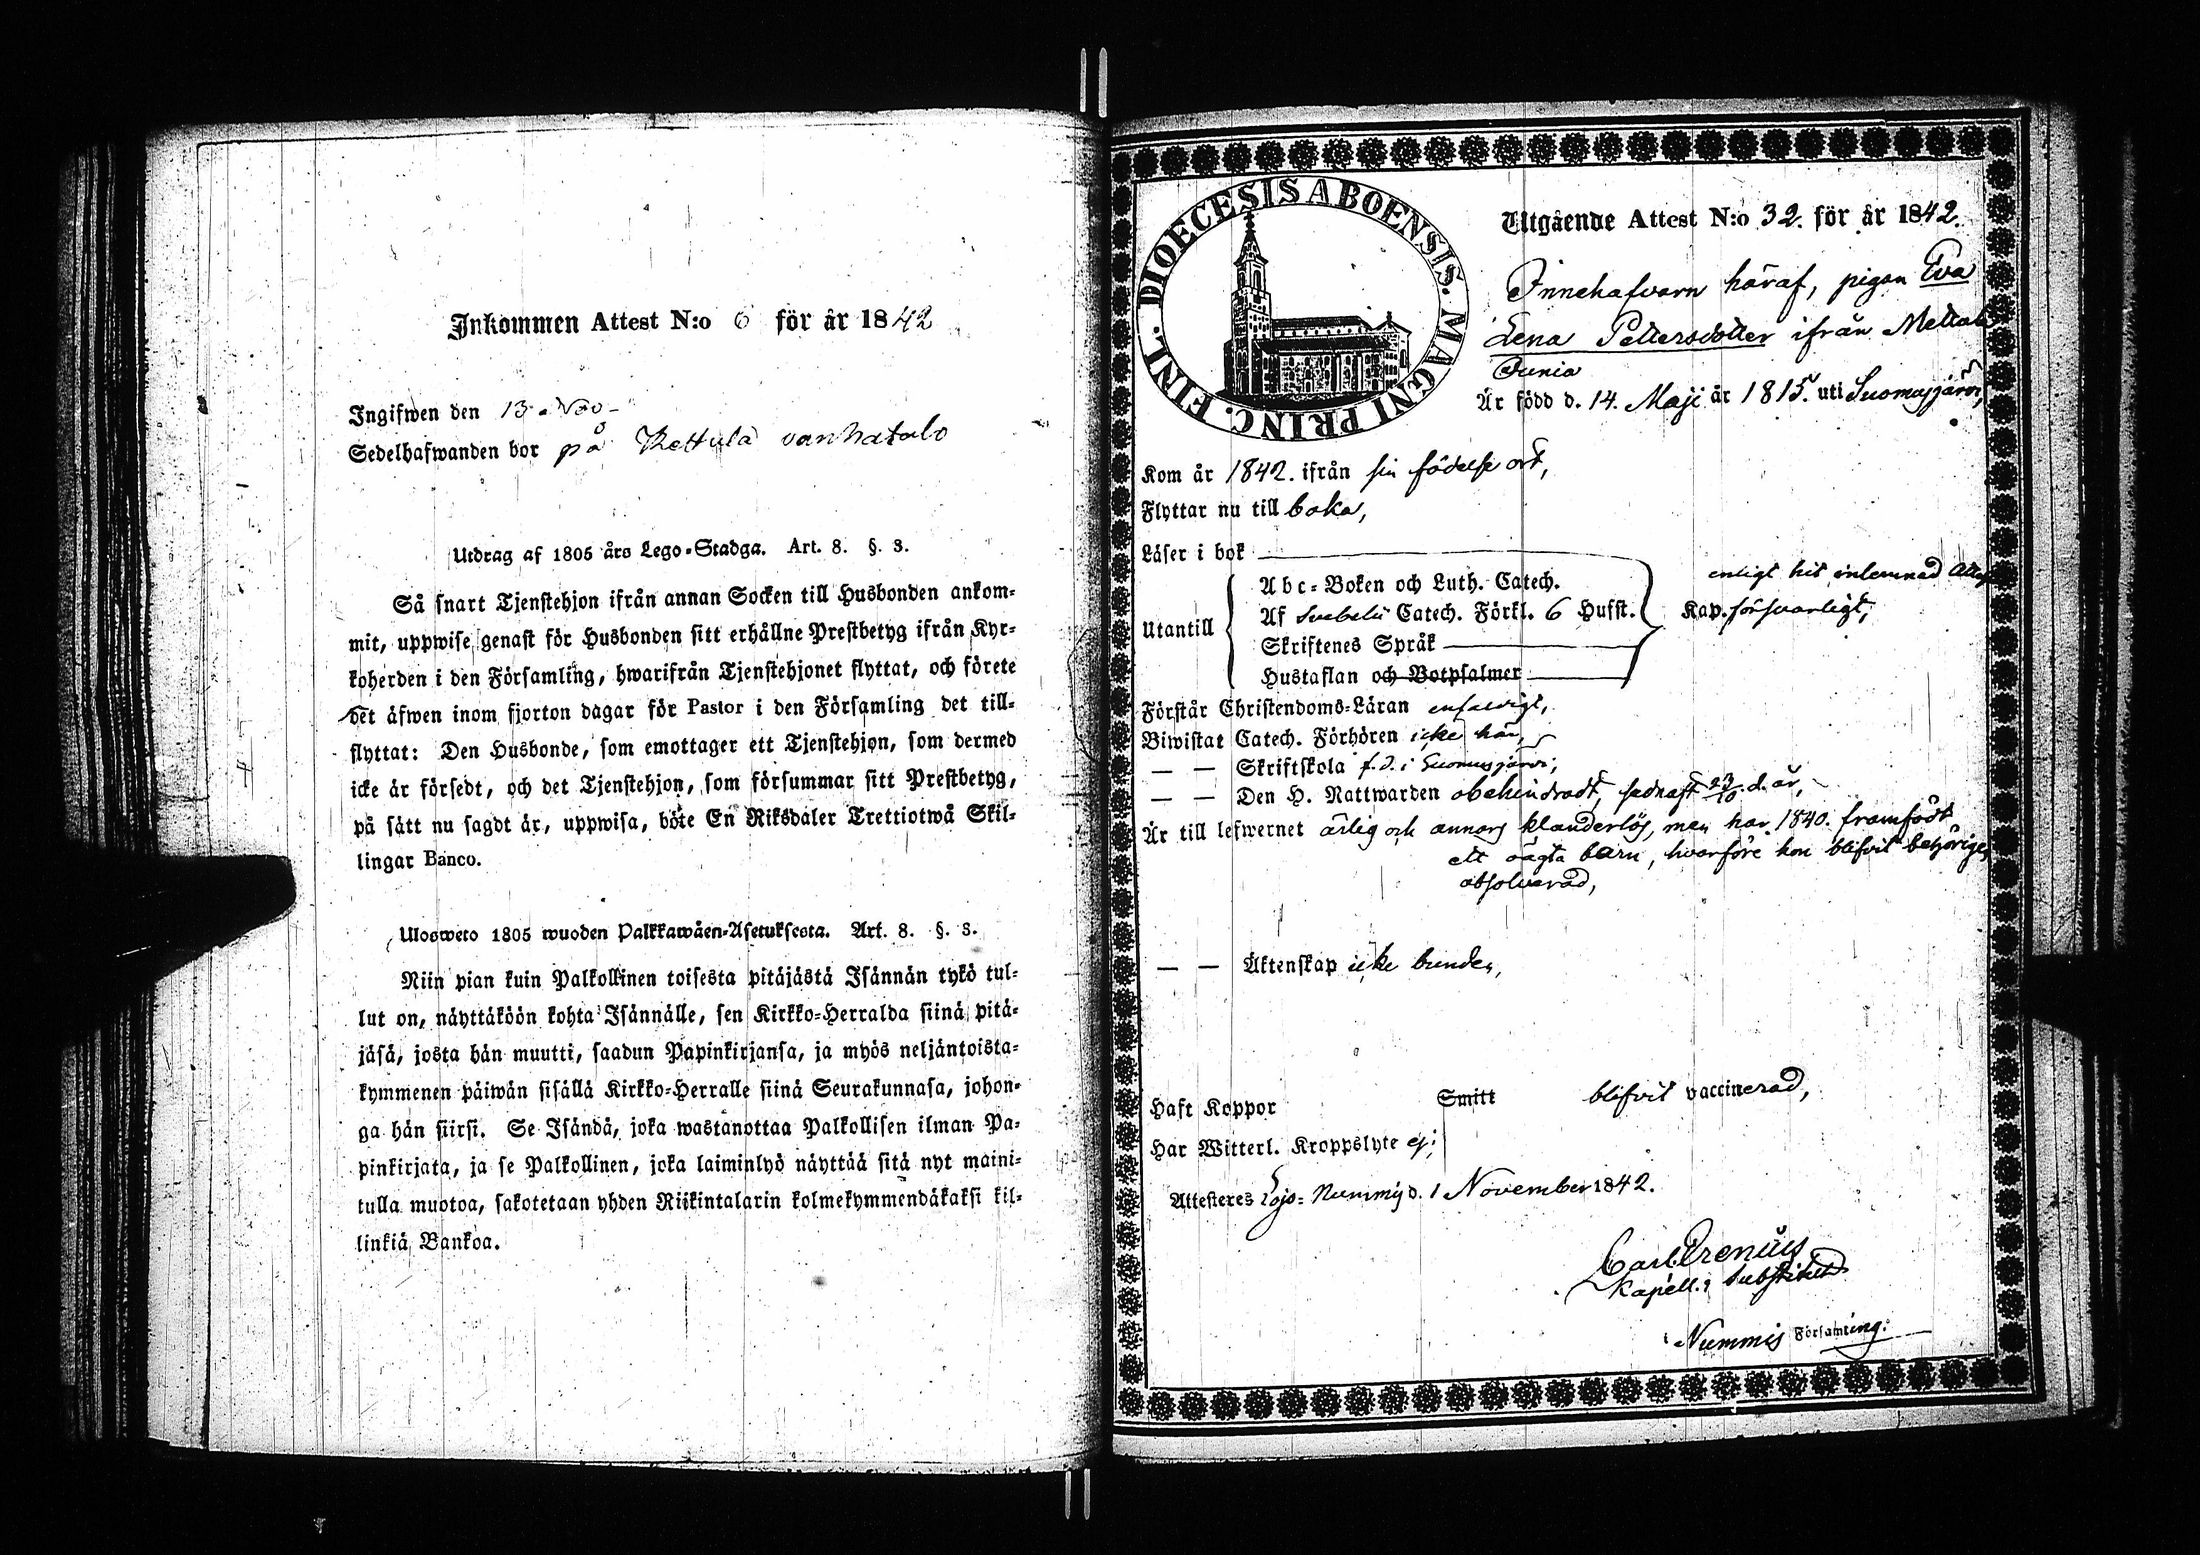 Inkommen Attest N:o 6 för år 1842
Ingifwen den 13 Nov
Sedelhafwanden bor på Kettula vanhatalo
Utdrag af 1805 års Lego-Stadga. Art. 8. §. 3.
Så snart Tjenstehjon ifrån annan Socken till Husbonden ankom-
mit, uppwise genast för Husbonden sitt erhållne Prestbetyg ifrån Kyr-
koherden i den Församling, hwarifrån Tjenstehjonet flyttat, och förete
det äfwen inom fjorton dagar för Pastor i den Församling det till-
flyttat: Den Husbonde, som emottager ett Tjenstehjon, som dermed
icke är försedt, och det Tjenstehjon, som försummar sitt Prestbetyg,
på sätt nu sagdt är, uppwisa, böte En Riksdaler Trettiotwå Skil-
lingar Banco.
Ulosweto 1805 wuoden Palkkawäen-Asetuksesta. Art. 8. §. 3.
Niin pian kuin Palkollinen toisesta pitäjästä Isännän tykö tul-
lut on, näyttäköön kohta Isännälle, sen Kirkko-Herralda siinä pitä-
jäsä, josta hän muutti, saadun Papinkirjansa, ja myös neljäntoista-
kymmenen päiwän sisällä Kirkko-Herralle siinä Seurakunnasa, johon-
ga hän siirsi. Se Isändä, joka wastanottaa Palkollisen ilman Pa-
pinkirjata, ja se Palkollinen, joka laiminlyö näyttää sitä nyt maini-
tulla muotoa, sakotetaan yhden Riikintalarin kolmekymmendäkaksi kil-
linkiä Bankoa.
DIOECESIS ABOENSIS. MAGNI PRINC. FINL.
Utgående Attest N:o 32. för år 1842.
Innehafvarn häraf, pigan Eva
Lena Pettersdotter ifrån
Är född d. 14. Maji år 1815. uti Suomusjärvi,
Kom år 1842. ifrån sin födelse ort,
Flyttar nu till baka,
Läser i bok
enligt hit inlemnad
Utantill
Abc-Boken och Luth. Catech.
Af Svebelii Catech. Förkl. 6 Hufst.
Kap. försvarligt,
Skriftenes Språk
Hustaflan och Botpsalmer
Förstår Christendoms-Läran enfaldigt,
Biwistat Catech. Förhören icke här,
— — Skriftskola f. d. i Suomusjärvi,
— — Den H. Nattwarden obehindradt, sednast 23/10 d. år,
Är till lefwernet ärlig och annars klanderlös, men har 1840. framfödt
ett oägta barn, hvarföre hon blifvit behörigen
absolverad,
— — Äktenskap icke bunden,
Haft Koppor Smitt blifvit vaccinerad,
Har Witterl. Kroppslyte ej;
Attesteras Lojo-Nummis d. 1 November 1842.
Carl Orenius
Kapell. Substitut
i Nummis Församling.